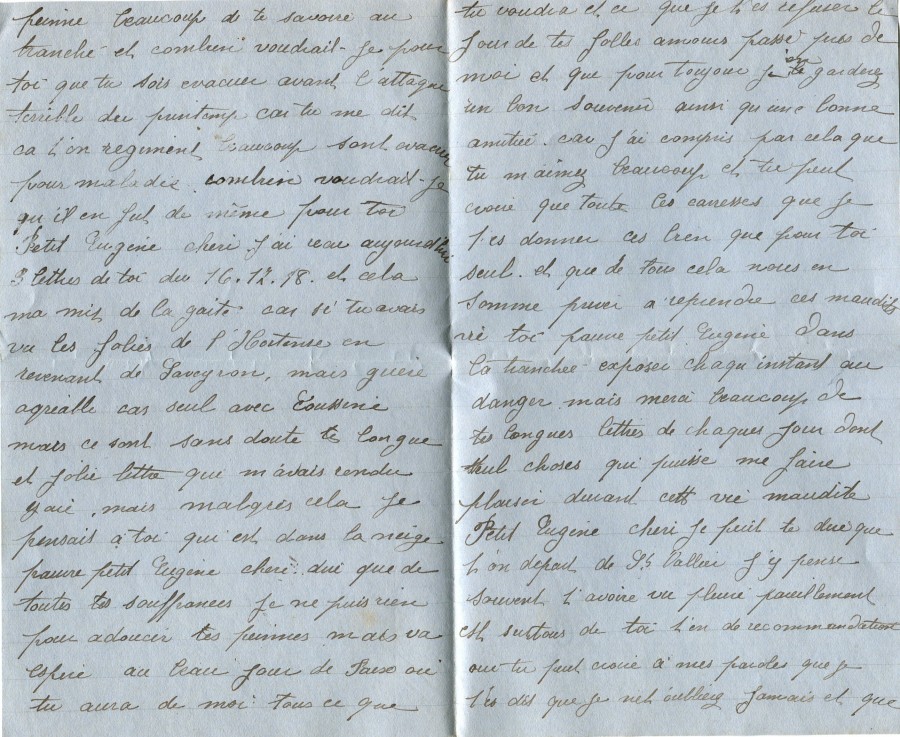 peinne beaucoup de te savoire au
tranché et combien voudrait-je pour
toi que tu sois evacuer avant l'attaque
terrible du printemp car tu me dit
ca t'on regiment beaucoup sont evacuer
pour maladie. combien voudrait-je
qu'il en fut de même pour toi
Petit Eugène cheri j'ai reau aujourd'hui
3 lettres de toi du 16.17.18. et cela
ma mis de la gaité car si tu avais
vu les folies de l'Hortense en
revenant de Saveyron, mais guere
agréable car seul avec
mais ce sont sans doute te longue
et jolie lettre qui m'avais rendu
gaie, mais malgrés cela je
pensait a toi qui est dans la neige
pauvre petit Eugène cheri. dui que de
toutes tes souffrances je ne puis rien
pour adoucir tes peinnes mais va
espere au beau jour de Paix ou
tu aura de moi tous ce que
tu voudra et ce que je t'es refuser le
jour de tes folles amours passé pres de
moi et que pour toujour je t'en garderez
un bon souvenir ainsi qu'une bonne
amitiée. car j'ai compris par cela que
tu m'aimez beaucoup et tu peut
croire que toute les caresses que je
t'es donner ces bien que pour toi
seul. et que de tous cela nous en
somme priver a reprendre ces maudits
vie toi pauvre petit Eugène dans
la tranchée exposer chaqu'instant au
danger mais merci beaucoup de
tes longues lettres de chaques jour dont
seul choses qui puisse me faire
plaisir durant cett vie maudite
Petit Eugène cheri je peut te dire que
t'on départ de St Vallier j'y pense
souvent t'avoire vu pleuré pareillement
est surtous de toi t'en de recommendation
oui tu peut croire à mes paroles que je
t'es dis que je net'oublirez jamais et que